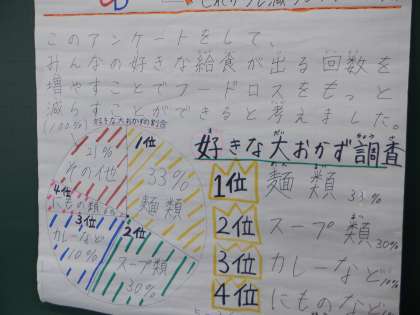 このアンケートをして、
みんなの好きな給食が出る回数を
増やすことでフードロスをもっと
減らすことができると考えました。
(100%)
好きな大おかずの割合
1位
33%
麺類
2位
スープ類
30%
3位
カレーなど
10%
4位
にもの
21%
その他
好きな大おかず調査
1位 麺類 33%
2位 スープ類 30%
3位 カレーなど 10%
4位 にものなど